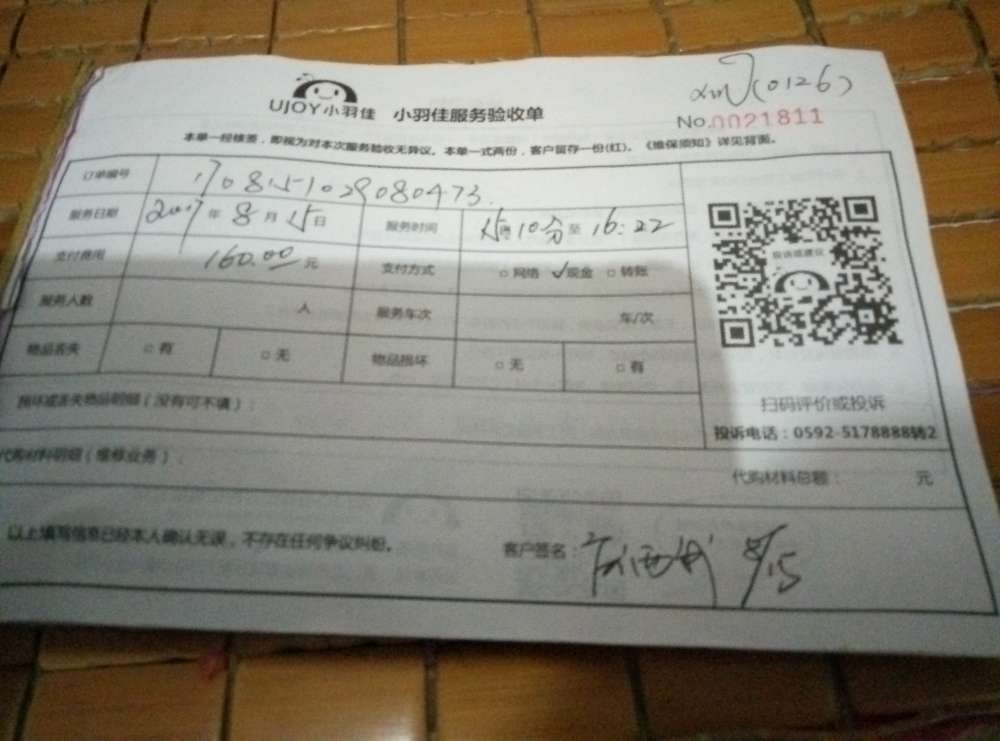 (0126)
UJOY小羽佳 小羽佳服务验收单
No.0021811
本单一经核签，即视为对本次服务验收无异议。本单一式两份，客户留存一份(红)。《维保须知》详见背面。
订单编号 170815102908473
服务日期 2017年8月15日 服务时间 15时10分至16:22
支付费用 160.00元 支付方式 □网络 √现金 □转账
服务人数 人 服务车次 车/次
物品丢失 □有 □无 物品损坏 □无 □有
投诉或建议
损坏或丢失物品明细（没有可不填）：
扫码评价或投诉
投诉电话：0592-5178888转2
代购材料明细（维修业务）：
代购材料总额： 元
以上填写信息已经本人确认无误，不存在任何争议纠纷。 客户签名： 8/15